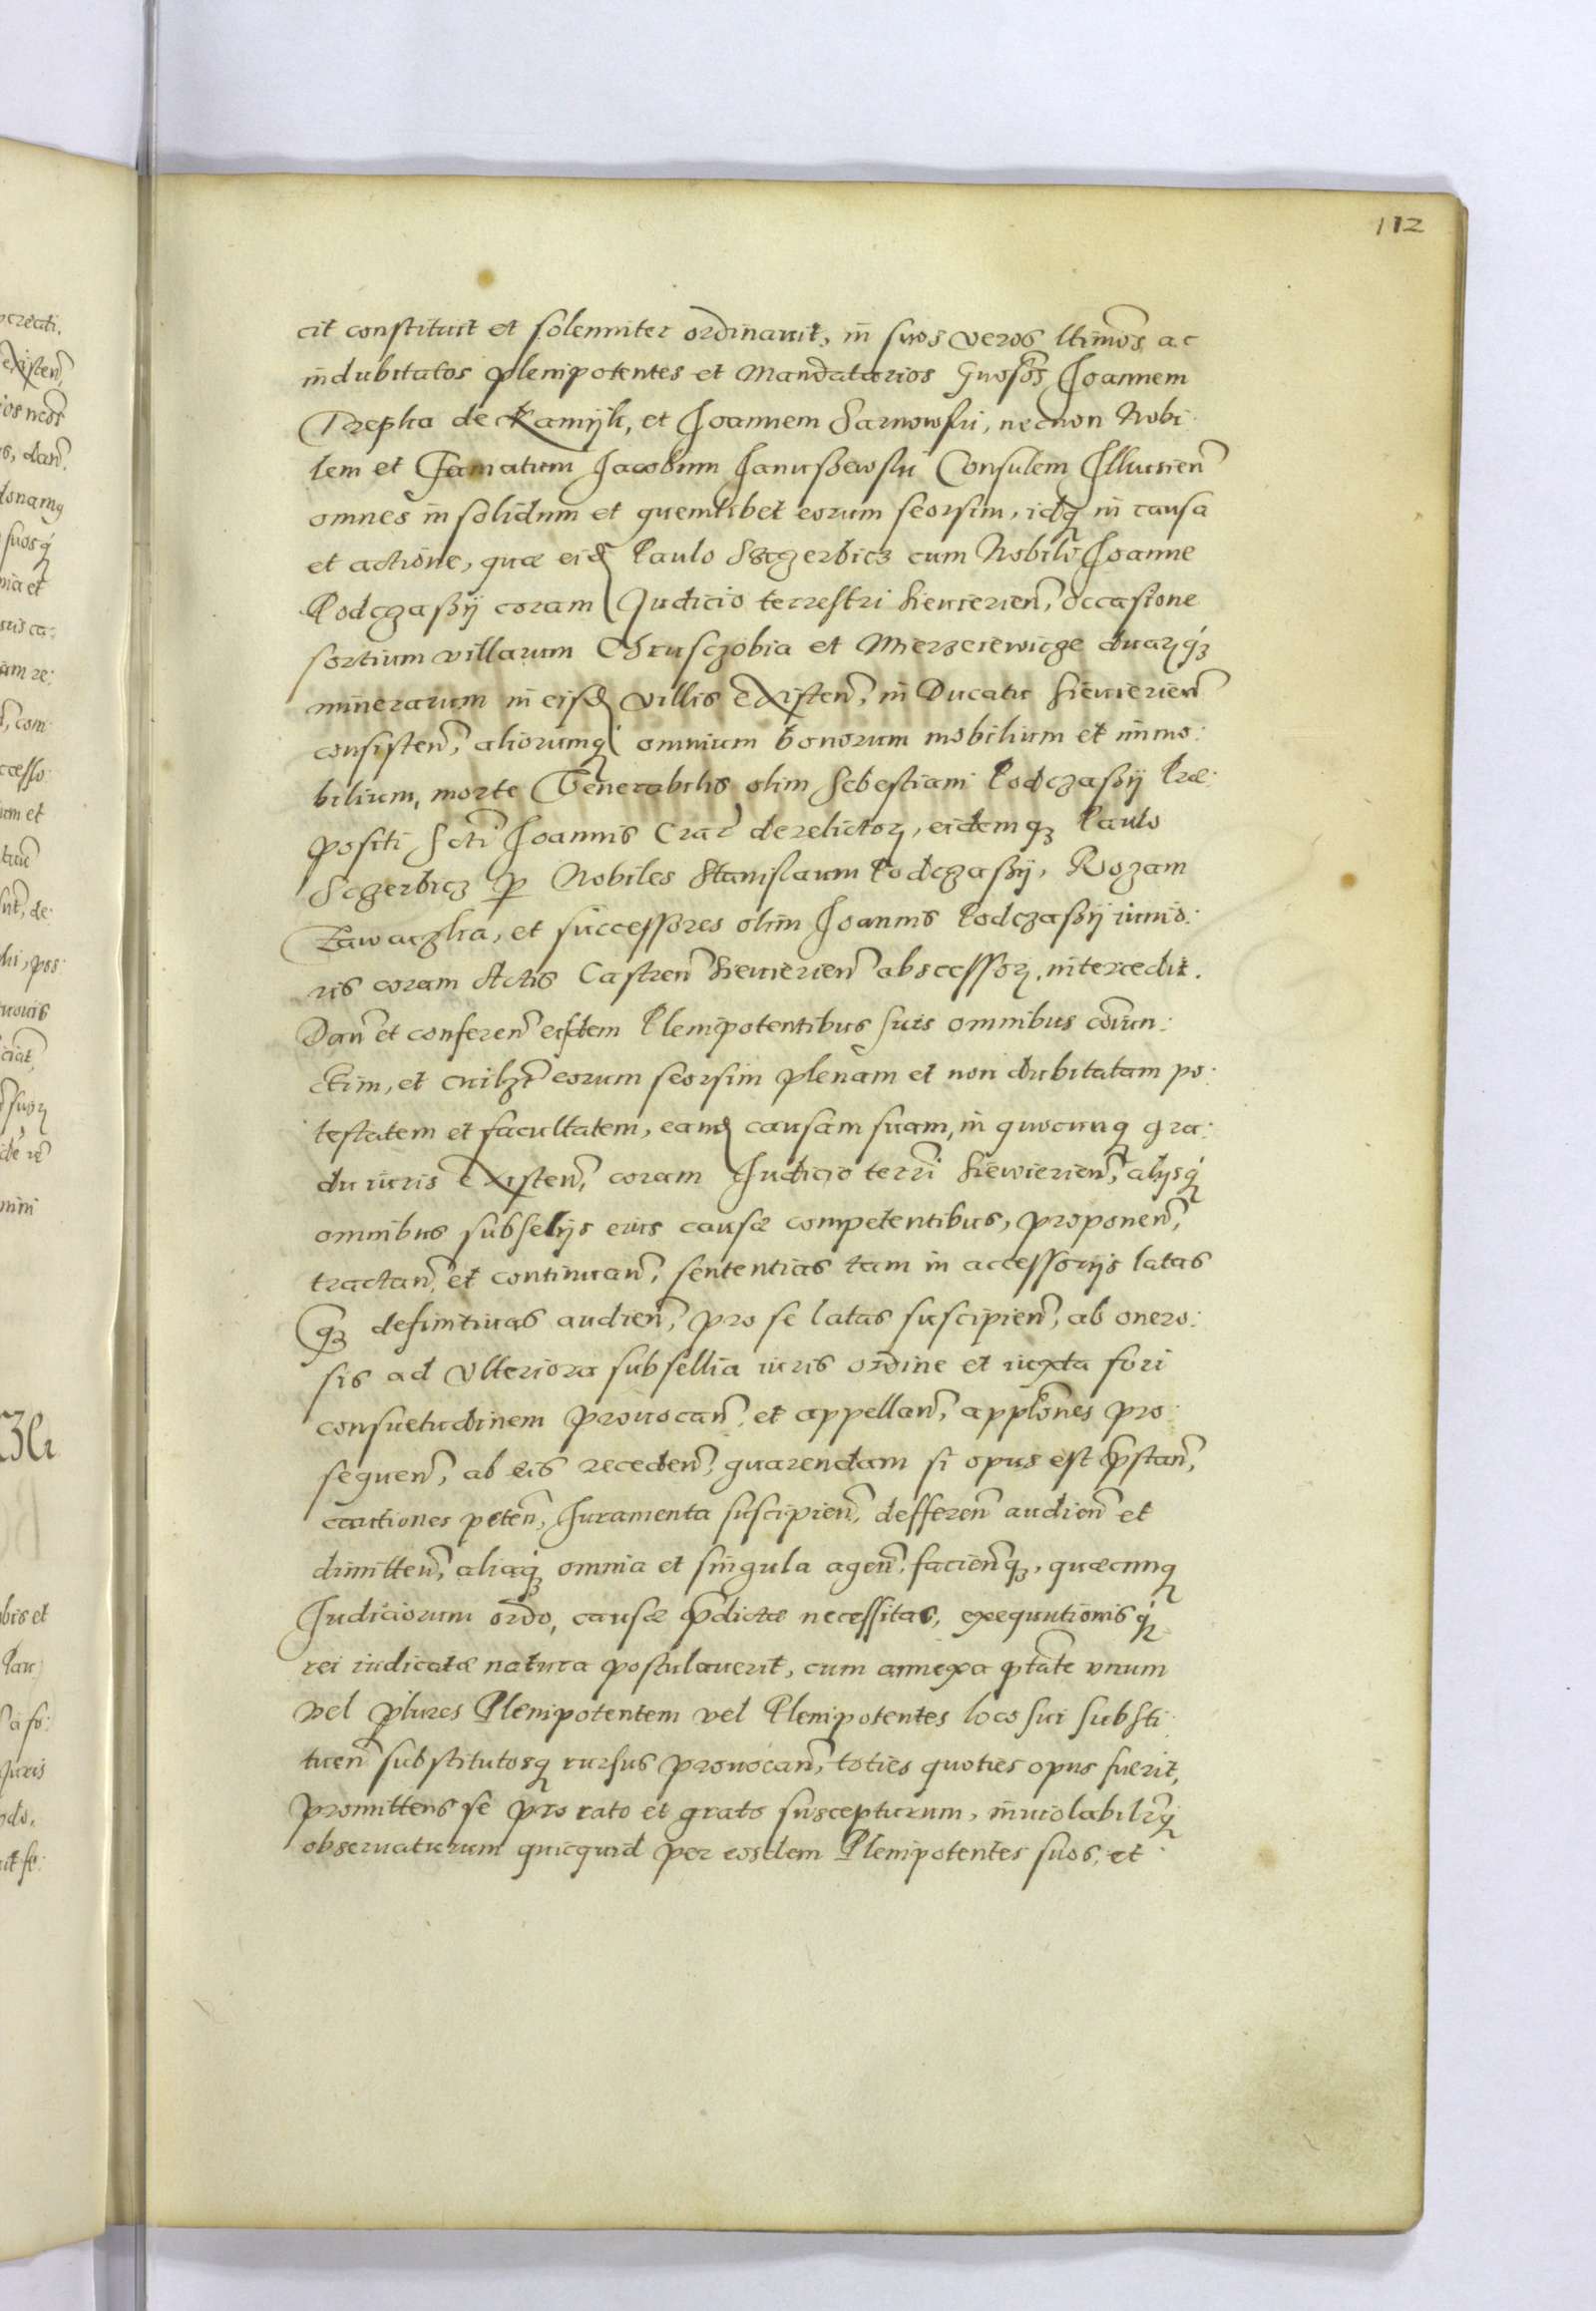 112
cit constituit et solenniter ordinauit, in suos veros ltimos ac
indubitatos plenipotentes et Mandatarios Gnosos Joannem
Trepka de Kamyk, et Joannem Sarnowski, necnon Nobi
lem et Famatum Jacobum Janußewski Consulem Ilkusien
omnes in solidum et quemlibet eorum seorsim, idq in causa
et actione, quæ eid Paulo Sczerbicz cum Nobili Joanne
Podczaßÿ coram Judicio terrestri Siewierien, occasione
sortium villarum Chrusczobia et Mierzeiewicze duarqz
minerarum in eisd villis existen, in Ducatu Siewierien
consisten, aliorumq omnium bonorum mobilium et immo:
bilium, morte Venerabilis olim Sebestiani Podczaßÿ Præ:
positi Scti Joannis Crac derelictor, eidemqz Paulo
Sczerbicz p Nobiles Stanislaum Podczaßÿ, Rozam
Zawaczka, et successores olim Joannis Podczaßÿ iunio:
ris coram Actis Castren Siewierien abscessor, intercedit.
Dan et conferen eisdem Plenipotentibus suis omnibus coniun:
ctim, et cuilzt eorum seorsim plenam et non dubitatam po:
testatem et facultatem, eand causam suam, in quocunq gra:
du iuris existen, coram Judicio terri Siewierien, alijsq
omnibus subselijs eius causæ competentibus, proponen,
tractan, et continuan, sententias tam in accessorijs latas
qz definitiuas audien, pro se latas suscipien, ab onero:
sis ad vlteriora subsellia iuris ordine et iuxta fori
consuetudinem prouocan, et appellan, applones pro:
sequen, ab eis receden, guarendam si opus est pstan,
cautiones peten, Juramenta suscipien, defferen audien et
dimitten, aliaqz omnia et singula agen, facienqz, quæcunq
Judiciorum ordo, causæ pdictæ necessitas, exequutionis q
rei iudicatæ natura postulauerit, cum annexa ptate vnum
vel plures Plenipotentem vel Plenipotentes loco sui substi
tuen substitutosq rursus prouocan, toties quoties opus fuerit,
promittens se pro rato et grato suscepturum, inuiolabilrq
obseruaturum quicquid per eosdem Plenipotentes suos, et